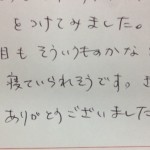 をつけてみました。
目もそういうものかな
寝ていられそうです。
ありがとうございました